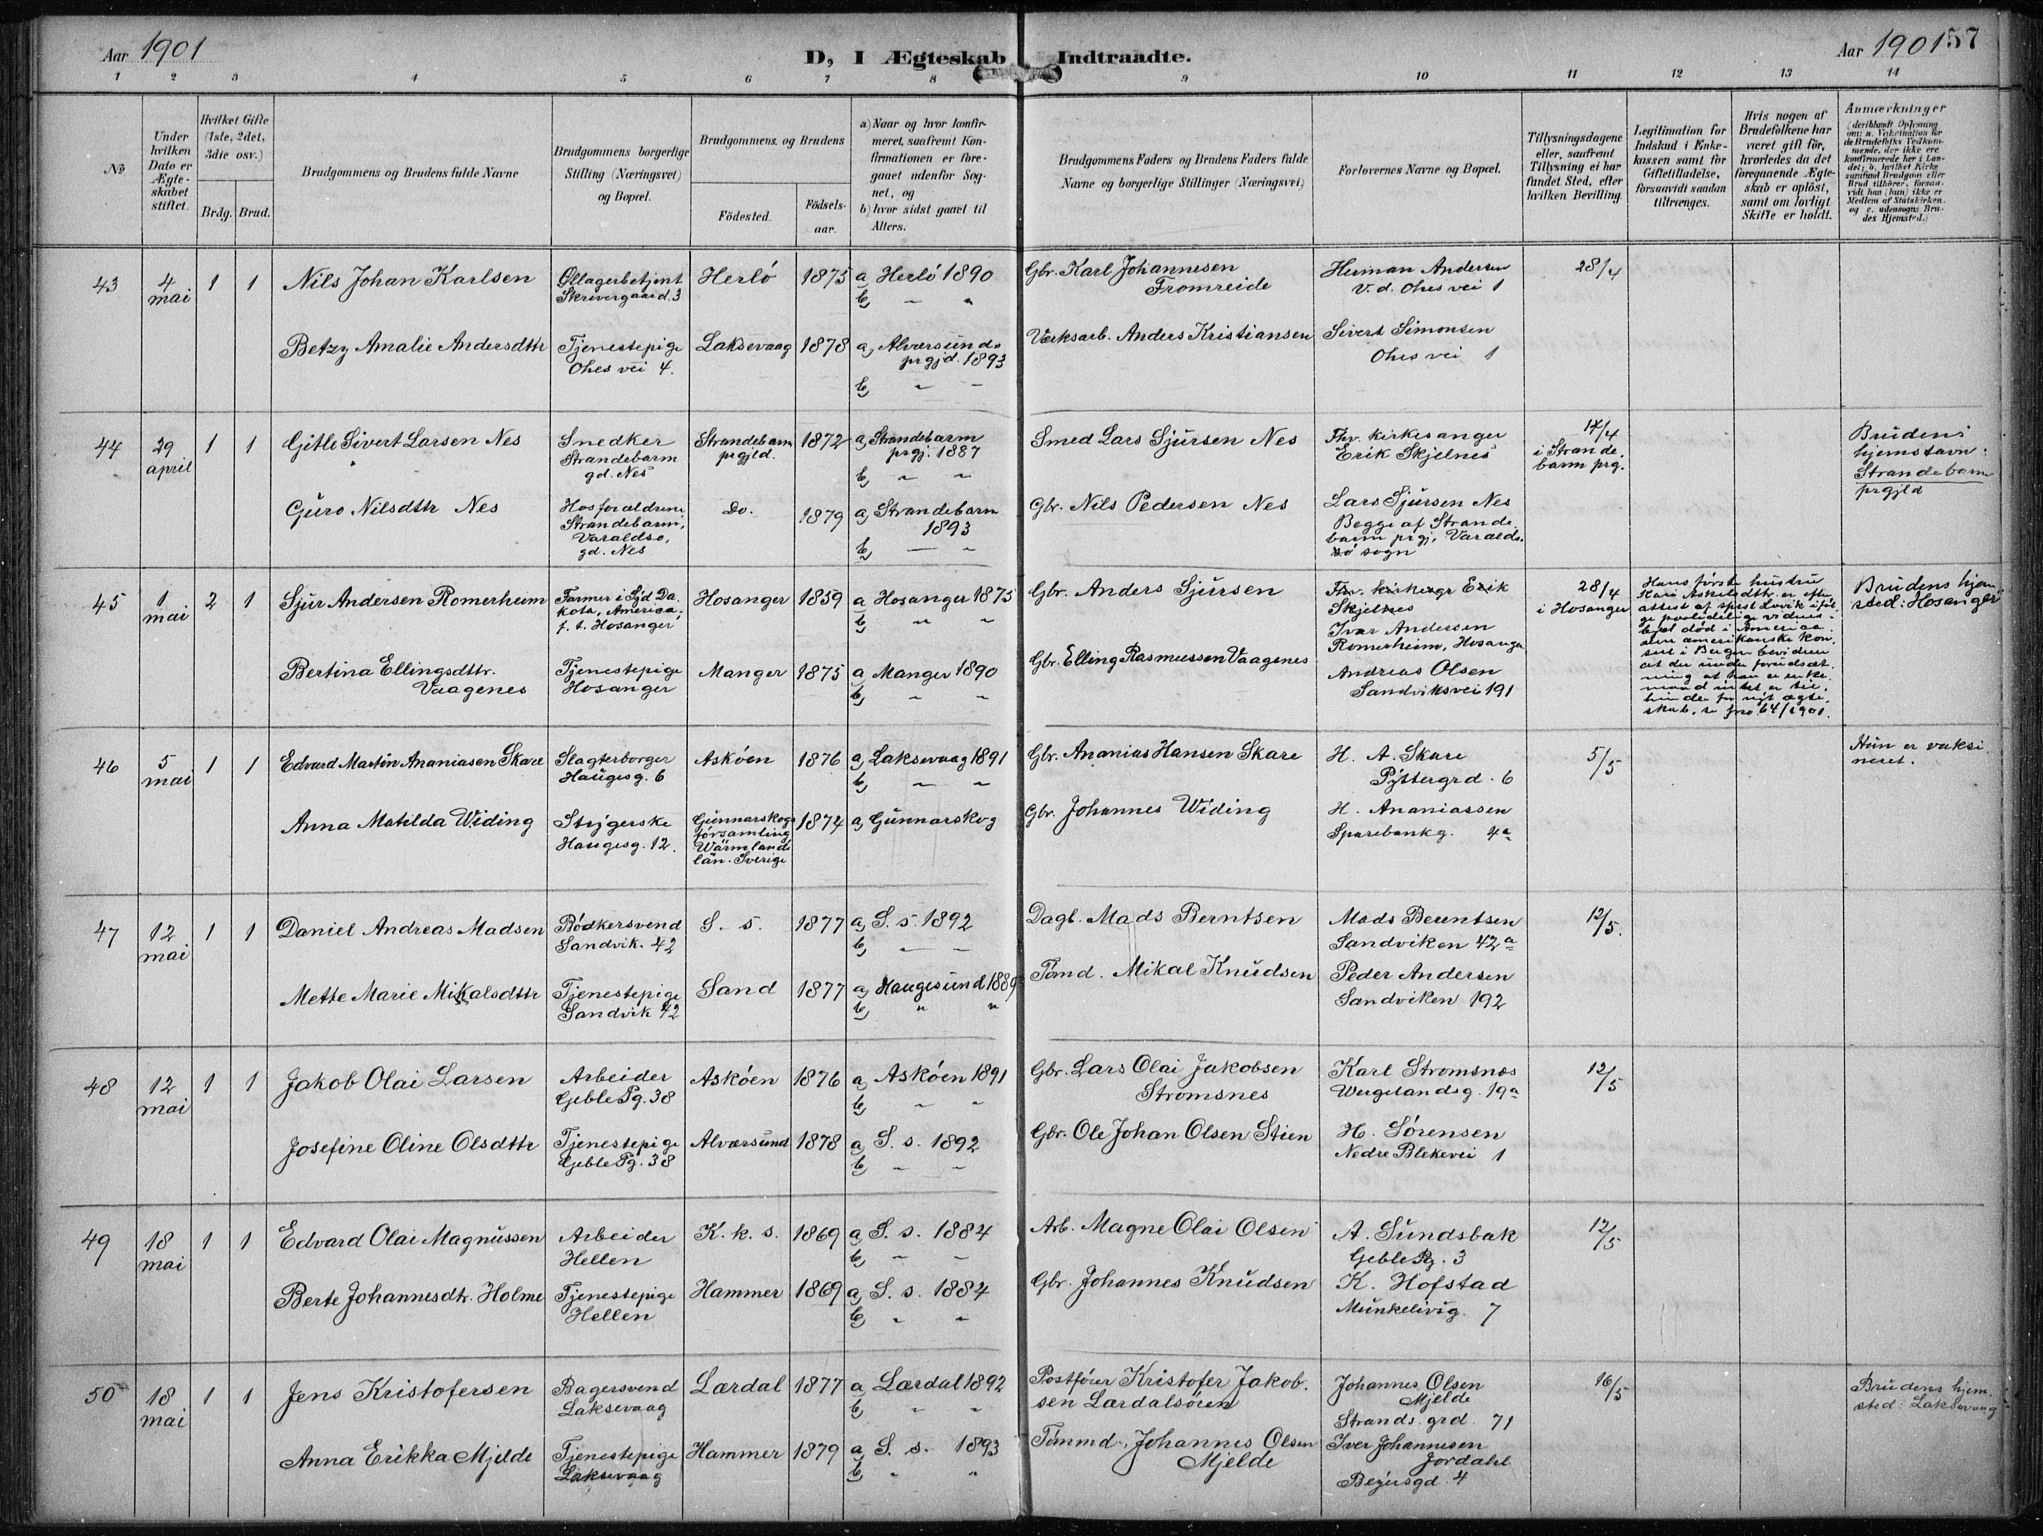 Aar 1901
D, I Ægteskab Indtraadte.
Aar 1901
57
1 2 3 4 5 6 7 8 9 10 11 12 13 14
No
Under hvilken Dato er Ægteskabet stiftet.
Hvilket Gifte (1ste, 2det, 3die osv.)
Brdg. Brud.
Brudgommens og Brudens fulde Navne
Brudgommens borgerlige Stilling (Næringsvei) og Bopæl.
Brudgommens og Brudens
Fødested.
Fødsels-aar.
a) Naar og hvor konfirmeret, saafremt Konfirmationen er foregaaet udenfor Sognet, og
b) hvor sidst gaaet til Alters.
Brudgommens Faders og Brudens Faders fulde Navne og borgerlige Stillinger (Næringsvei)
Forlovernes Navne og Bopæl.
Tillysningsdagene eller, saafremt Tillysning ei har fundet Sted, efter hvilken Bevilling.
Legitimation for Indskud i Enkekassen samt for Giftetilladelse, forsaavidt saadan tiltrænges.
Hvis nogen af Brudefolkene har været gift før, hvorledes da det foregaaende Ægteskab er opløst, samt om lovligt Skifte er holdt.
Anmærkninger
(deriblandt Oplysning om: a. Vakcination for de Brudefolks Vedkommende, der ikke ere konfirmerede her i Landet; b. hvilket Kirkesamfund Brudgom eller Brud tilhører, forsaavidt han (hun) ikke er Medlem af Statskirken, og c. udensogns Brudes Hjemsted.)
43 4 mai 1 1 Nils Johan Karlsen Øllagerbetjent Skrivergaard. 3 Herlø 1875 a, Herlø 1890 b, " " Gbr. Karl Johannesen Fromreide Herman Andersen V. d. Ohes vei 1 28/4
Betzy Amalie Andersdttr Tjenestepige Ohes vei 4. Laksevaag 1878 a, Alversunds prgjd. 1893 b, " " Værksarb. Anders Kristiansen Sivert Simonsen Ohes vei 1
44 29 april 1 1 Gitle Sivert Larsen Nes Snedker Strandebarm gd. Nes Strandebarm prgjld. 1872 a, Strandebarm prgj. 1887 b, " " Smed Lars Sjursen Nes Fhv. kirkesanger Erik Skjelnes 14/4 i Strandebarm prg. Brudens hjemstavn: Strandebarm prgjld
Guro Nilsdttr Nes Hos forældrene, Strandebarm, Varaldsø, gd. Nes Do. 1879 a, Strandebarm 1893 b, — " Gbr. Nils Pedersen Nes Lars Sjursen Nes Begge af Strandebarm prgj, Varaldsø sogn
45 1 mai 2 1 Sjur Andersen Romerheim Farmer i Syd Dakota, America. f. t. Hosanger Hosanger 1859 a, Hosanger 1875 b, " " Gbr. Anders Sjursen Fhv. kirkesgr Erik Skjelnes Ivar Andersen Romerheim, Hosanger 28/4 i Hosanger Hans første hustru Kari Askelsdttr. er efter attest af død i America samt amerikanske konsul i Bergen at der under forudsætning at han er enkemand intet er til hinder for nyt ægteskab, se jno 64/1901. Brudens hjemsted: Hosanger
Bertina Ellingsdttr. Vaagenes Tjenestepige Hosanger Manger 1875 a, Manger 1890 b, " " Gbr. Elling Rasmussen Vaagenes Andreas Olsen Sandviksvei 191
46 5 mai 1 1 Edvard Martin Ananiasen Skare Slagterborger Haugesg. 6 Askøen 1876 a, Laksevaag 1891 b, " " Gbr. Ananias Hansen Skare H. A. Skare Pyttergrd. 6 5/5 Hun er vaksineret.
Anna Matilda Widing Strygerske Haugesg. 12. Gunnarskogs församling Wärmlands län. Sverige 1874 a, Gunnarskog Gbr. Johannes Widing H. Ananiassen Sparebankg. 4a
47 12 mai 1 1 Daniel Andreas Madsen Bødkersvend Sandvik. 42 S. s. 1877 a, S. s. 1892 b, " " Dagl. Mads Berntsen Mads Berentsen Sandviken 42a 12/5.
Mette Marie Mikalsdttr Tjenestepige Sandvik 42 Sand 1877 a, Haugesund 1889 b, " " Tømd. Mikal Knudsen Peder Andersen Sandviken 192
48 12 mai 1 1 Jakob Olai Larsen Arbeider Geble Pg. 38 Askøen 1876 a, Askøen 1891 b, " " Gbr. Lars Olai Jakobsen Strømsnes Karl Strømsnes Wergelandsg. 19a 12/5
Josefine Oline Olsdttr Tjenestepige Geble Pg. 38 Alversund 1878 a, S. s. 1892 b, " " Gbr. Ole Johan Olsen Stien H. Sørensen Nedre Blekevei 1
49 18 mai 1 1 Edvard Olai Magnussen Arbeider Hellen K. k. s. 1869 a, S. s. 1884 b, " " Arb. Magne Olai Olsen A. Sundsbak Geble Pg. 3 12/5
Berte Johannesdtr. Holme Tjenestepige Hellen Hammer 1869 a, S. s. 1884 b, " " Gbr. Johannes Knudsen K. Hofstad Munkelivsg. 7
50 18 mai 1 1 Jens Kristofersen Bagersvend Laksevaag Lærdal 1877 a, Lærdal 1892 b, " " Postfører Kristofer Jakobsen Lærdalsøren Johannes Olsen Mjelde Strands. grd. 71 16/5 Brudens hjemsted: Laksevaag
Anna Erikka Mjelde Tjenestepige Laksevaag Hammer 1879 a, S. s. 1893 b, " " Tømmd. Johannes Olsen Mjelde Iver Johannesen Jordahl 4